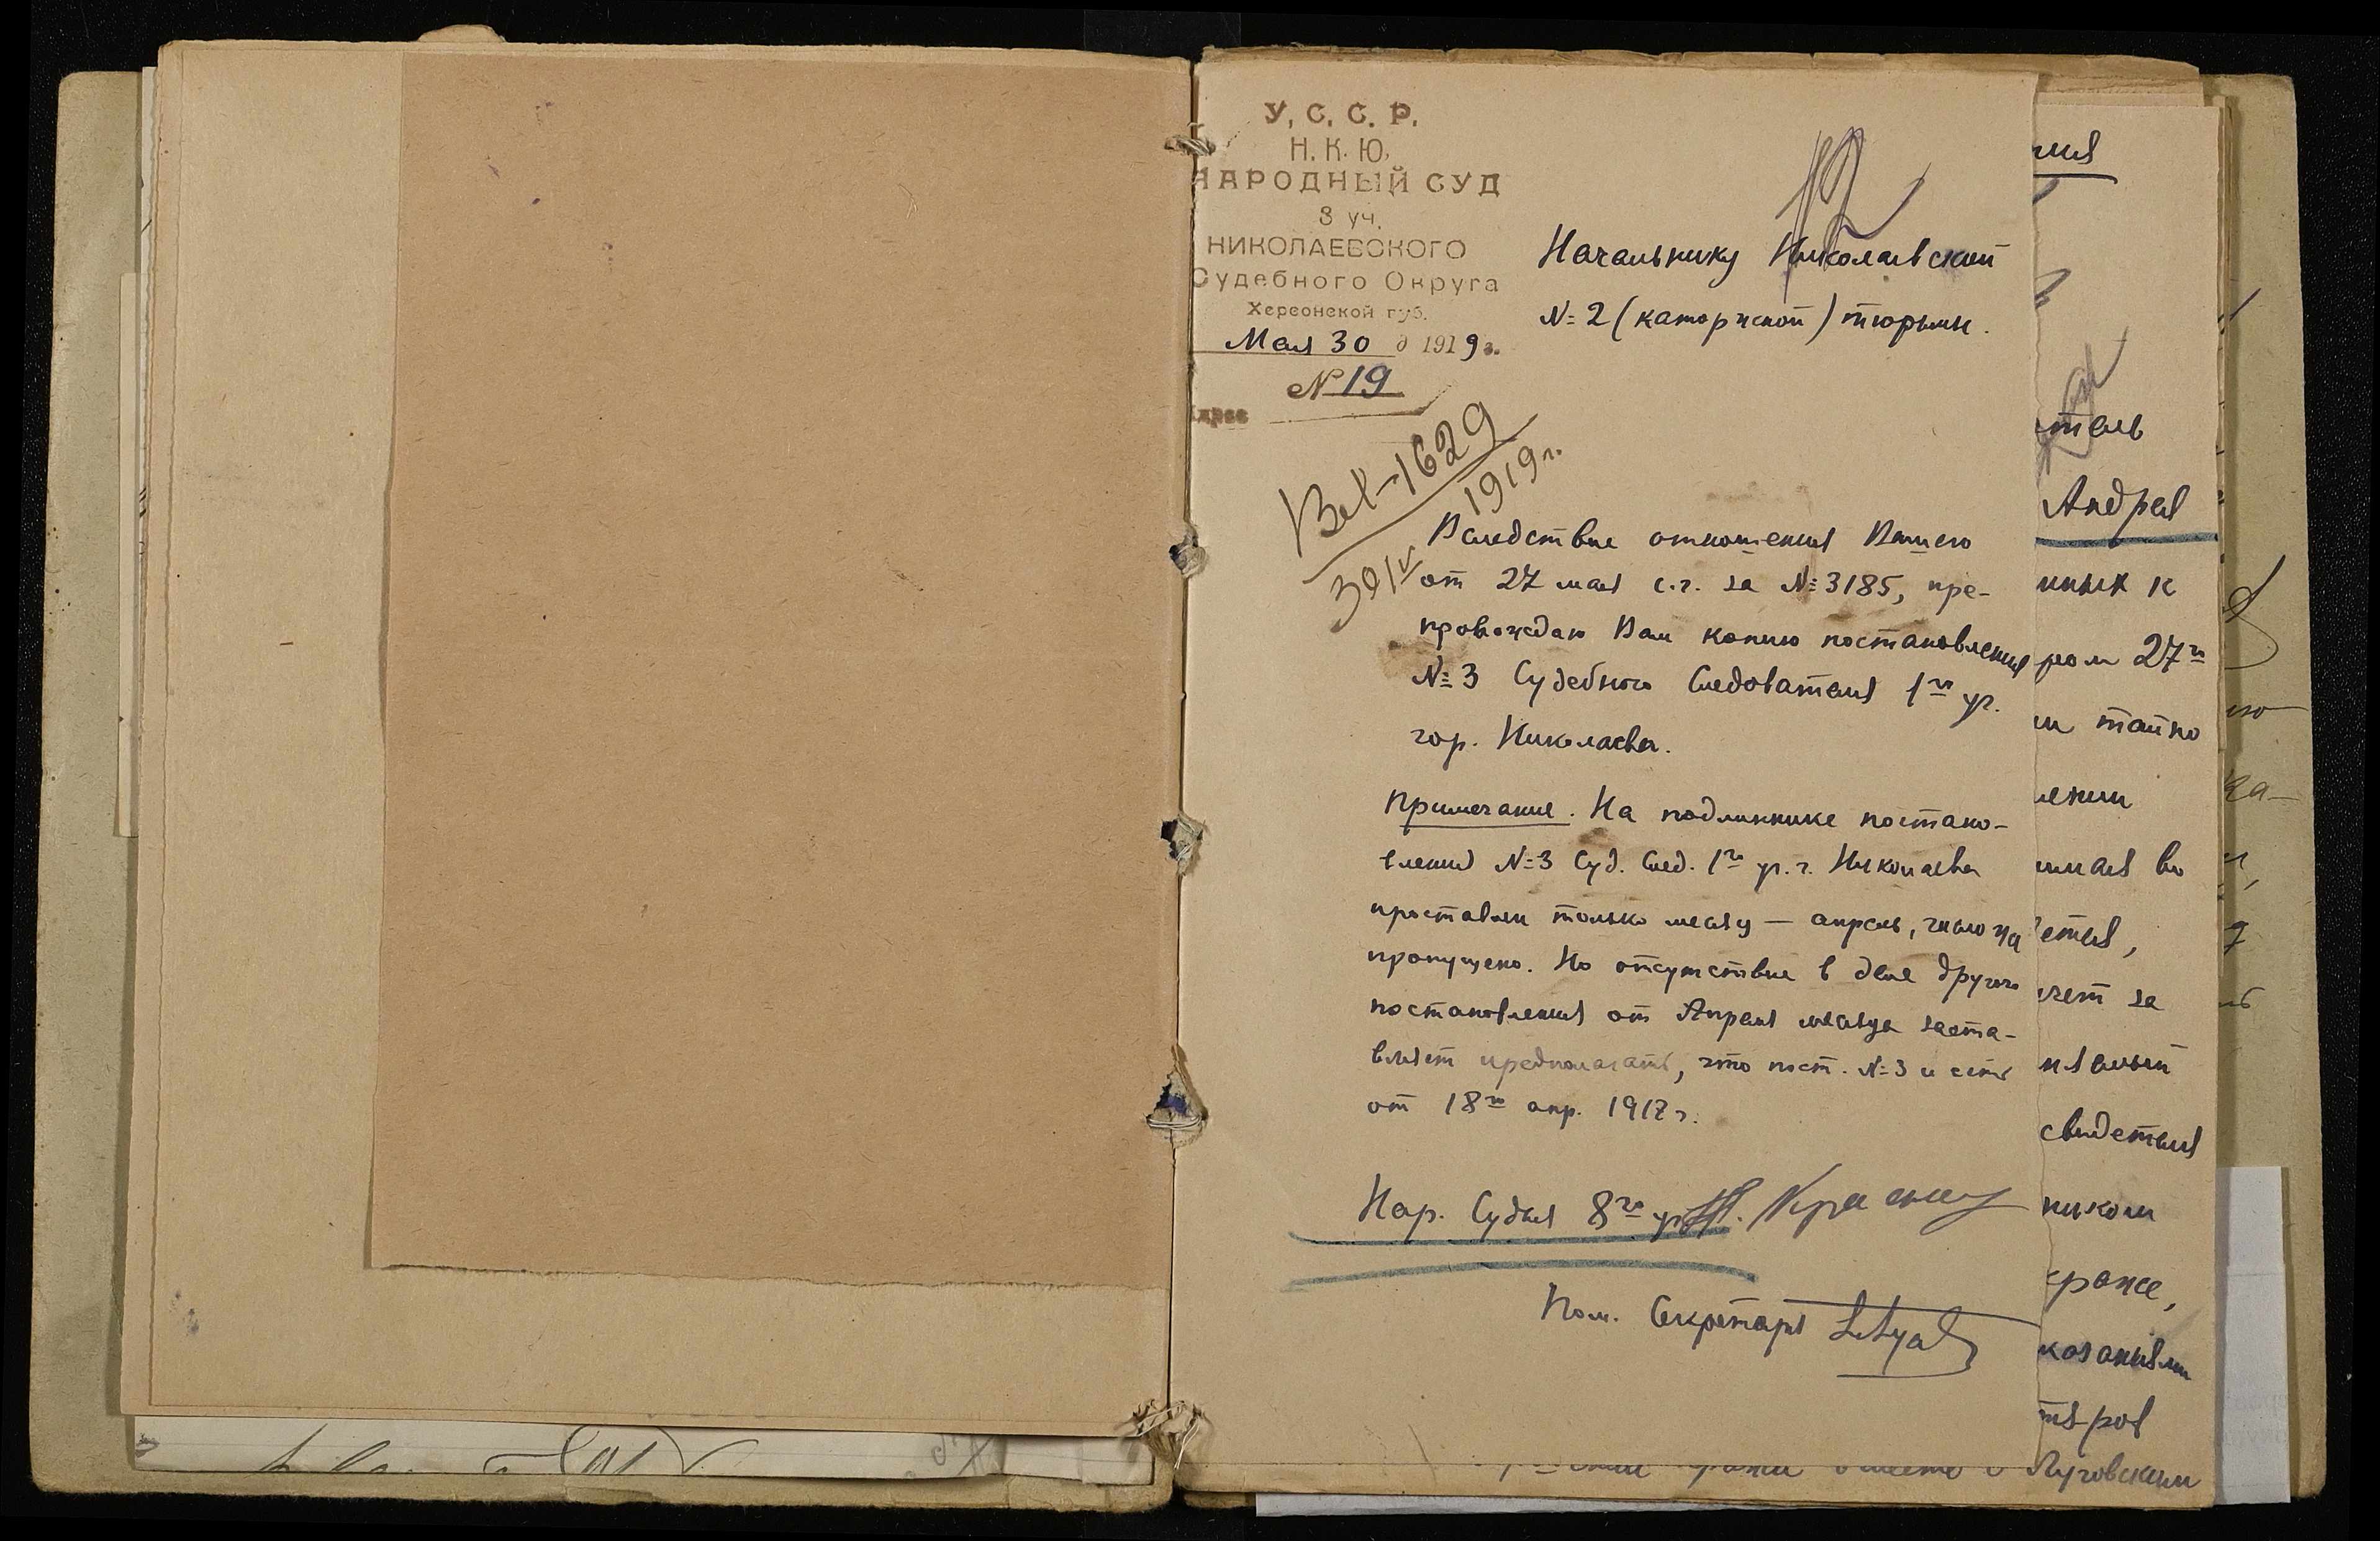 У. С. С. Р.
Н. К. Ю.
НАРОДНЫЙ СУД
8 уч.
НИКОЛАЕВСКОГО
Судебного Округа
Херсонской губ.
Мая 30 д 1919 г.
№ 19
Адрес
Начальнику Николаевской
№ 2 (каторжной) тюрьмы.
Вх-1629
1919 г.
30/V
Вследствие отношения Вашего
от 27 мая с.г. за № 3185, пре-
провождаю Вам копию постановления
№ 3 Судебного Следователя 1го уч.
гор. Николаева.
Примечание. На подлиннике постано-
вления № 3 Суд. След. 1го уч. г. Николаева
проставлен только месяц — апрель, число же
пропущено. Но отсутствие в деле другого
постановления от Апреля месяца заста-
вляет предполагать, что пост. № 3 и есть
от 18го апр. 1918 г.
Нар. Судья 8го уч.
Пом. Секретаря
Андрея
нных к
ром 27го
и тайно
лении
имая во
чет за
свидетеля
ником
краже,
казаниями
вместе с Луговским